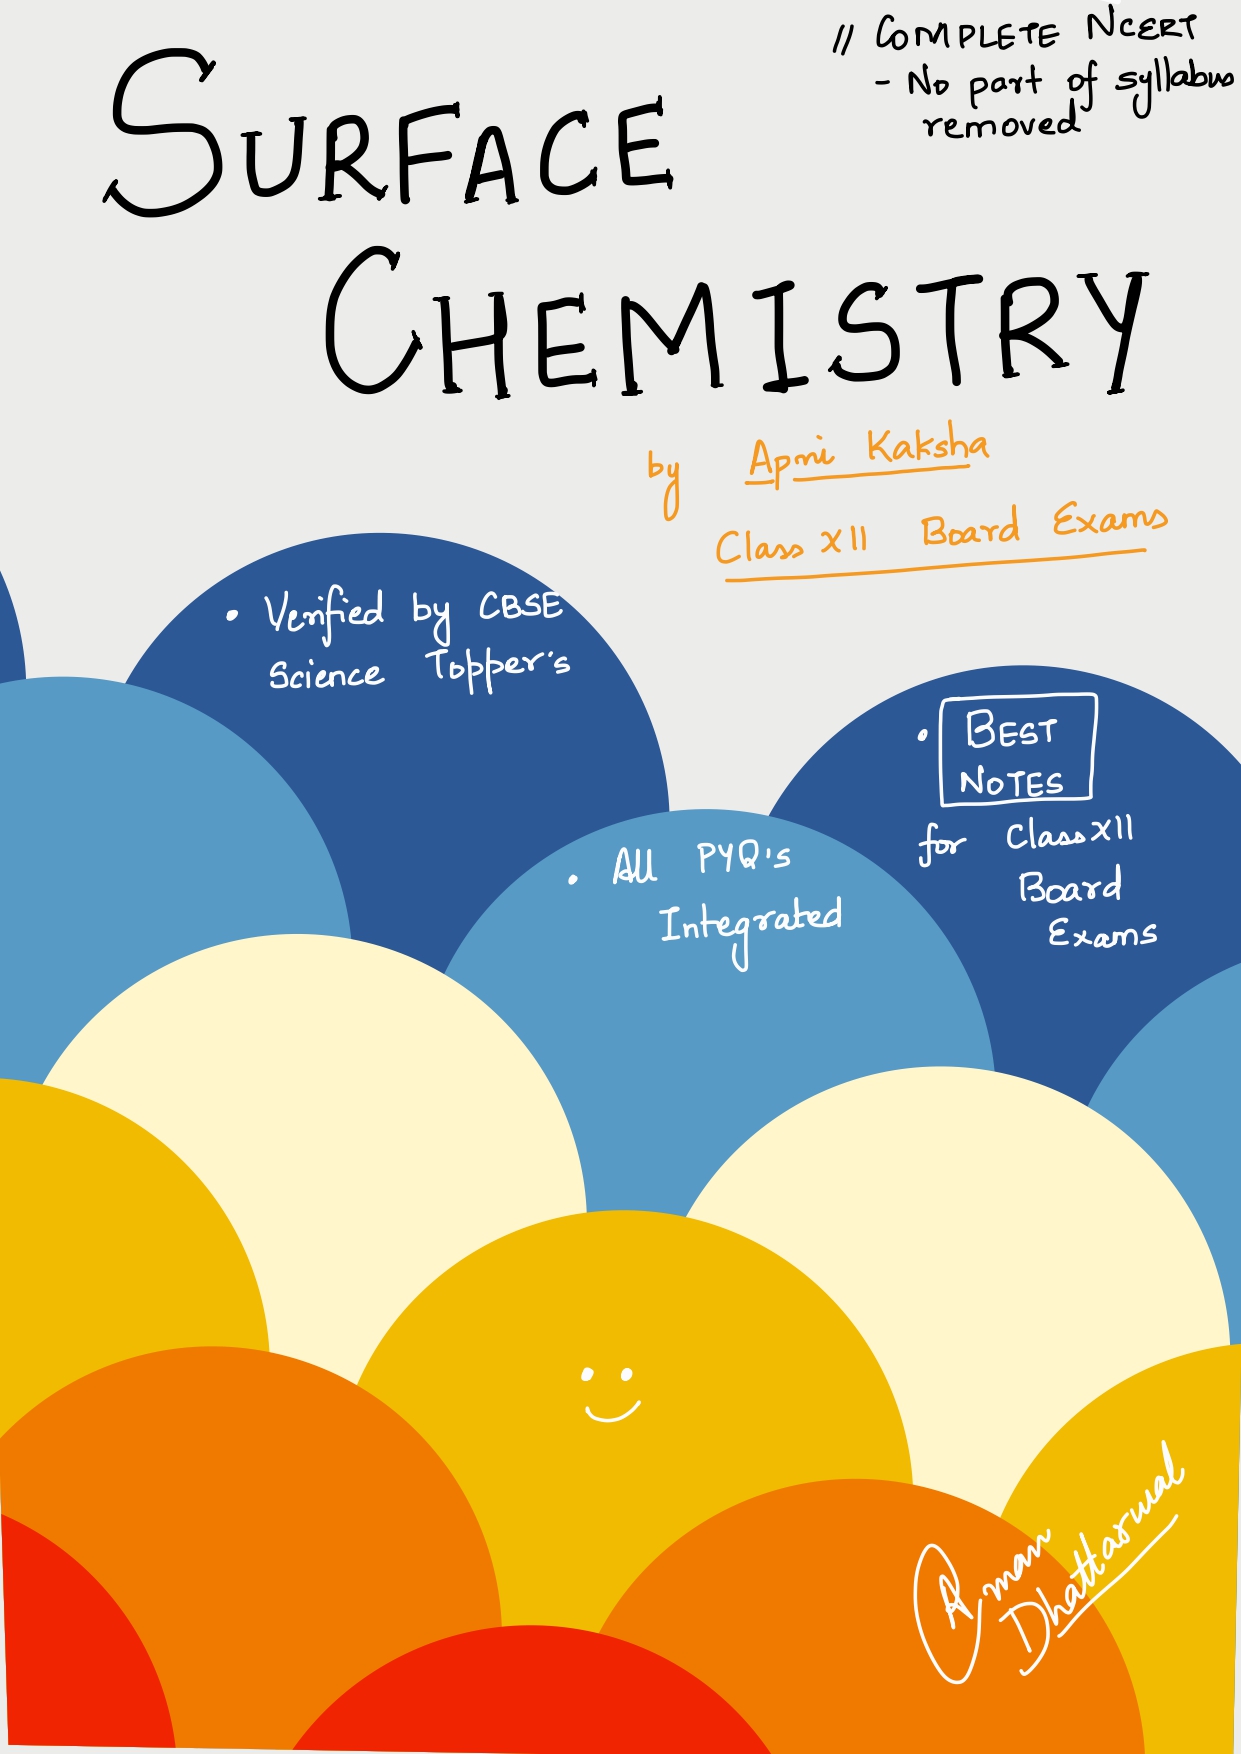 // COMPLETE NCERT
- No part of syllabus
removed
SURFACE
CHEMISTRY
by Apni Kaksha
Class XII Board Exams
• Verified by CBSE
Science Topper's
• BEST
NOTES
for Class XII
Board
Exams
• All PYQ's
Integrated
Aman
Dhattarwal